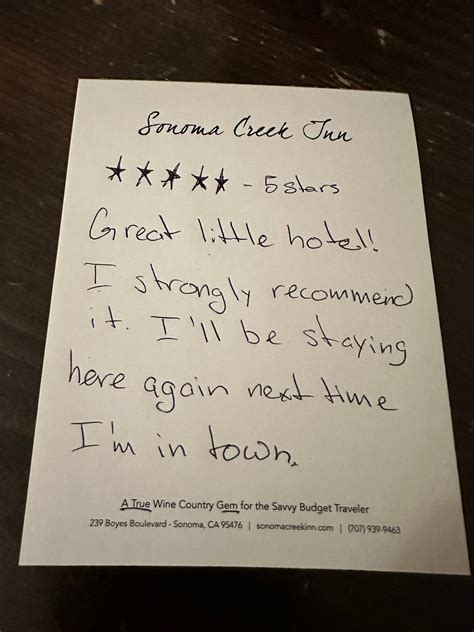 Sonoma Creek Inn
★★★★★ - 5 stars
Great little hotel!
I strongly recommend
it. I'll be staying
here again next time
I'm in town.
A True Wine Country Gem for the Savvy Budget Traveler
239 Boyes Boulevard - Sonoma, CA 95476 | sonomacreekinn.com | (707) 939-9463